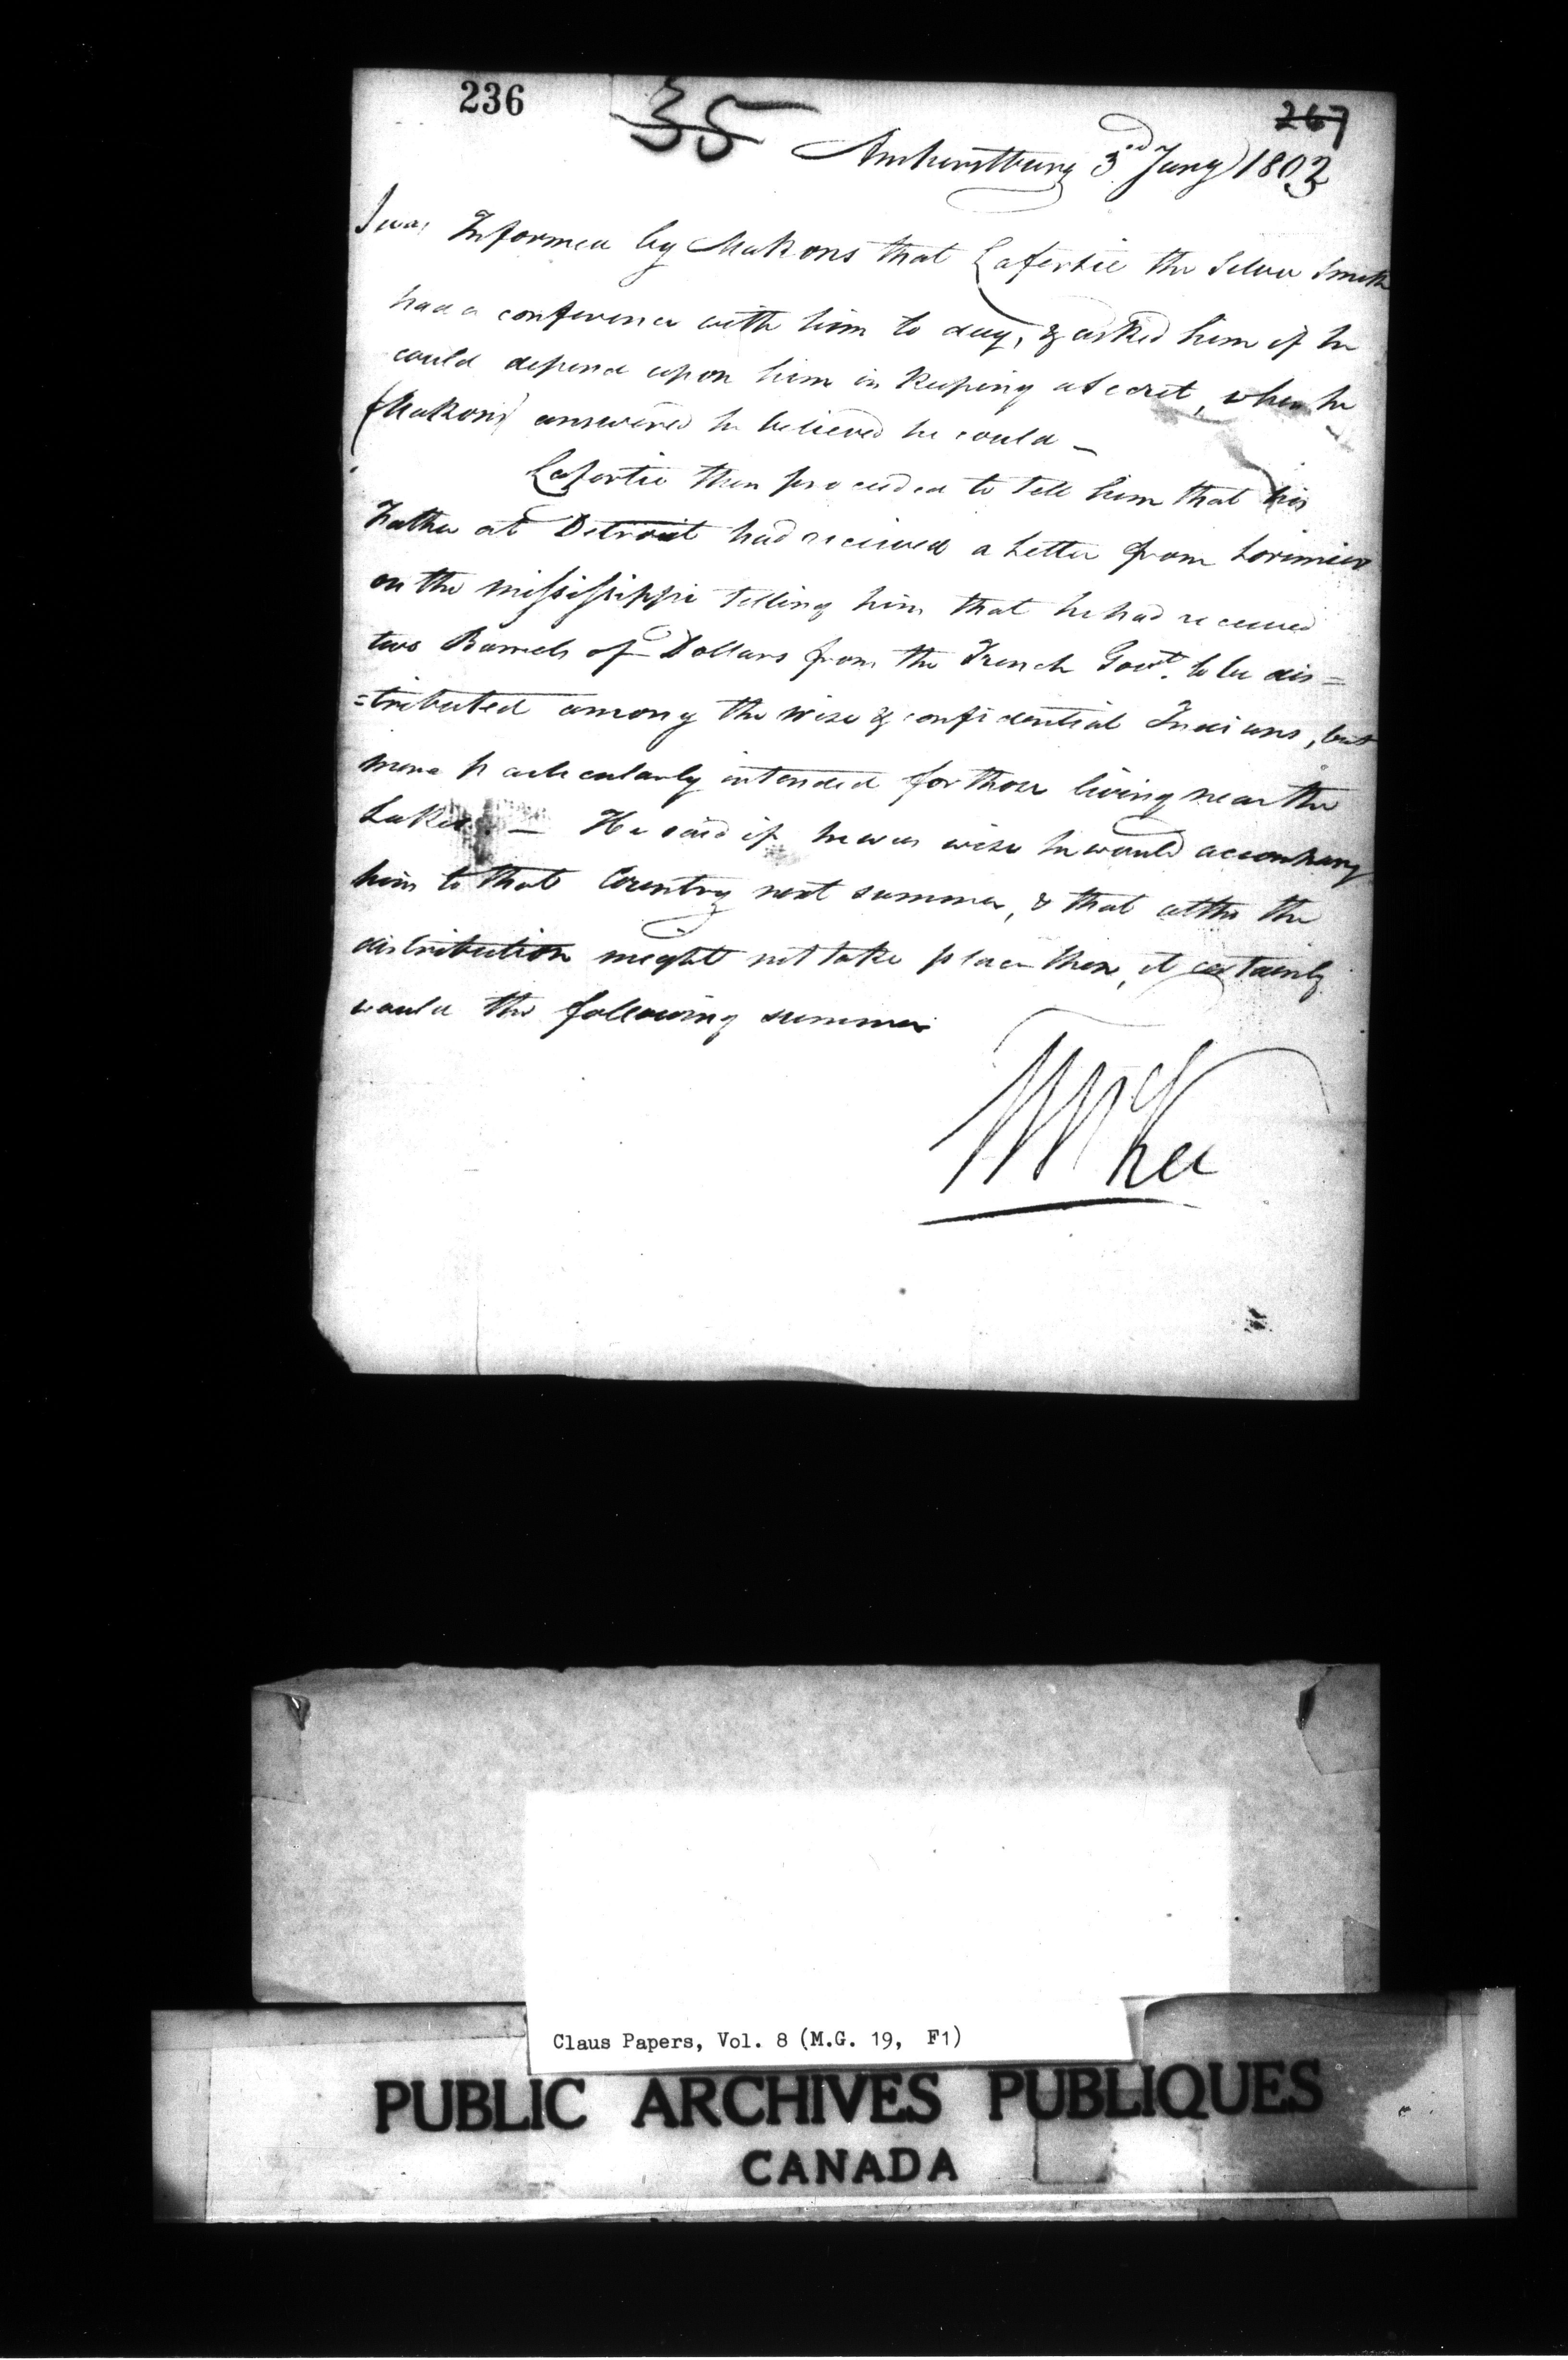 236
35
267
Amherstburg 3rd Jany 1803
I was Informed by Makons that Lafertie the Silver Smith
had a conference with him to day, & asked him if he
could depend upon him in keeping a secret, when he
(Makons) answered he believed he could —
Lafertie then proceeded to tell him that his
Father at Detroit had received a Letter from Lorimier
on the Mississippi telling him that he had received
two Barrels of Dollars from the French Govt. to be dis=
=tributed among the wise & confidential Indians, but
more particularly intended for those living near the
Lakes. — He said if he was wise he would accompany
him to that Country next summer, & that altho the
distribution might not take place then, it certainly
would the following summer
T McKee
Claus Papers, Vol. 8 (M.G. 19, F1)
PUBLIC ARCHIVES PUBLIQUES
CANADA